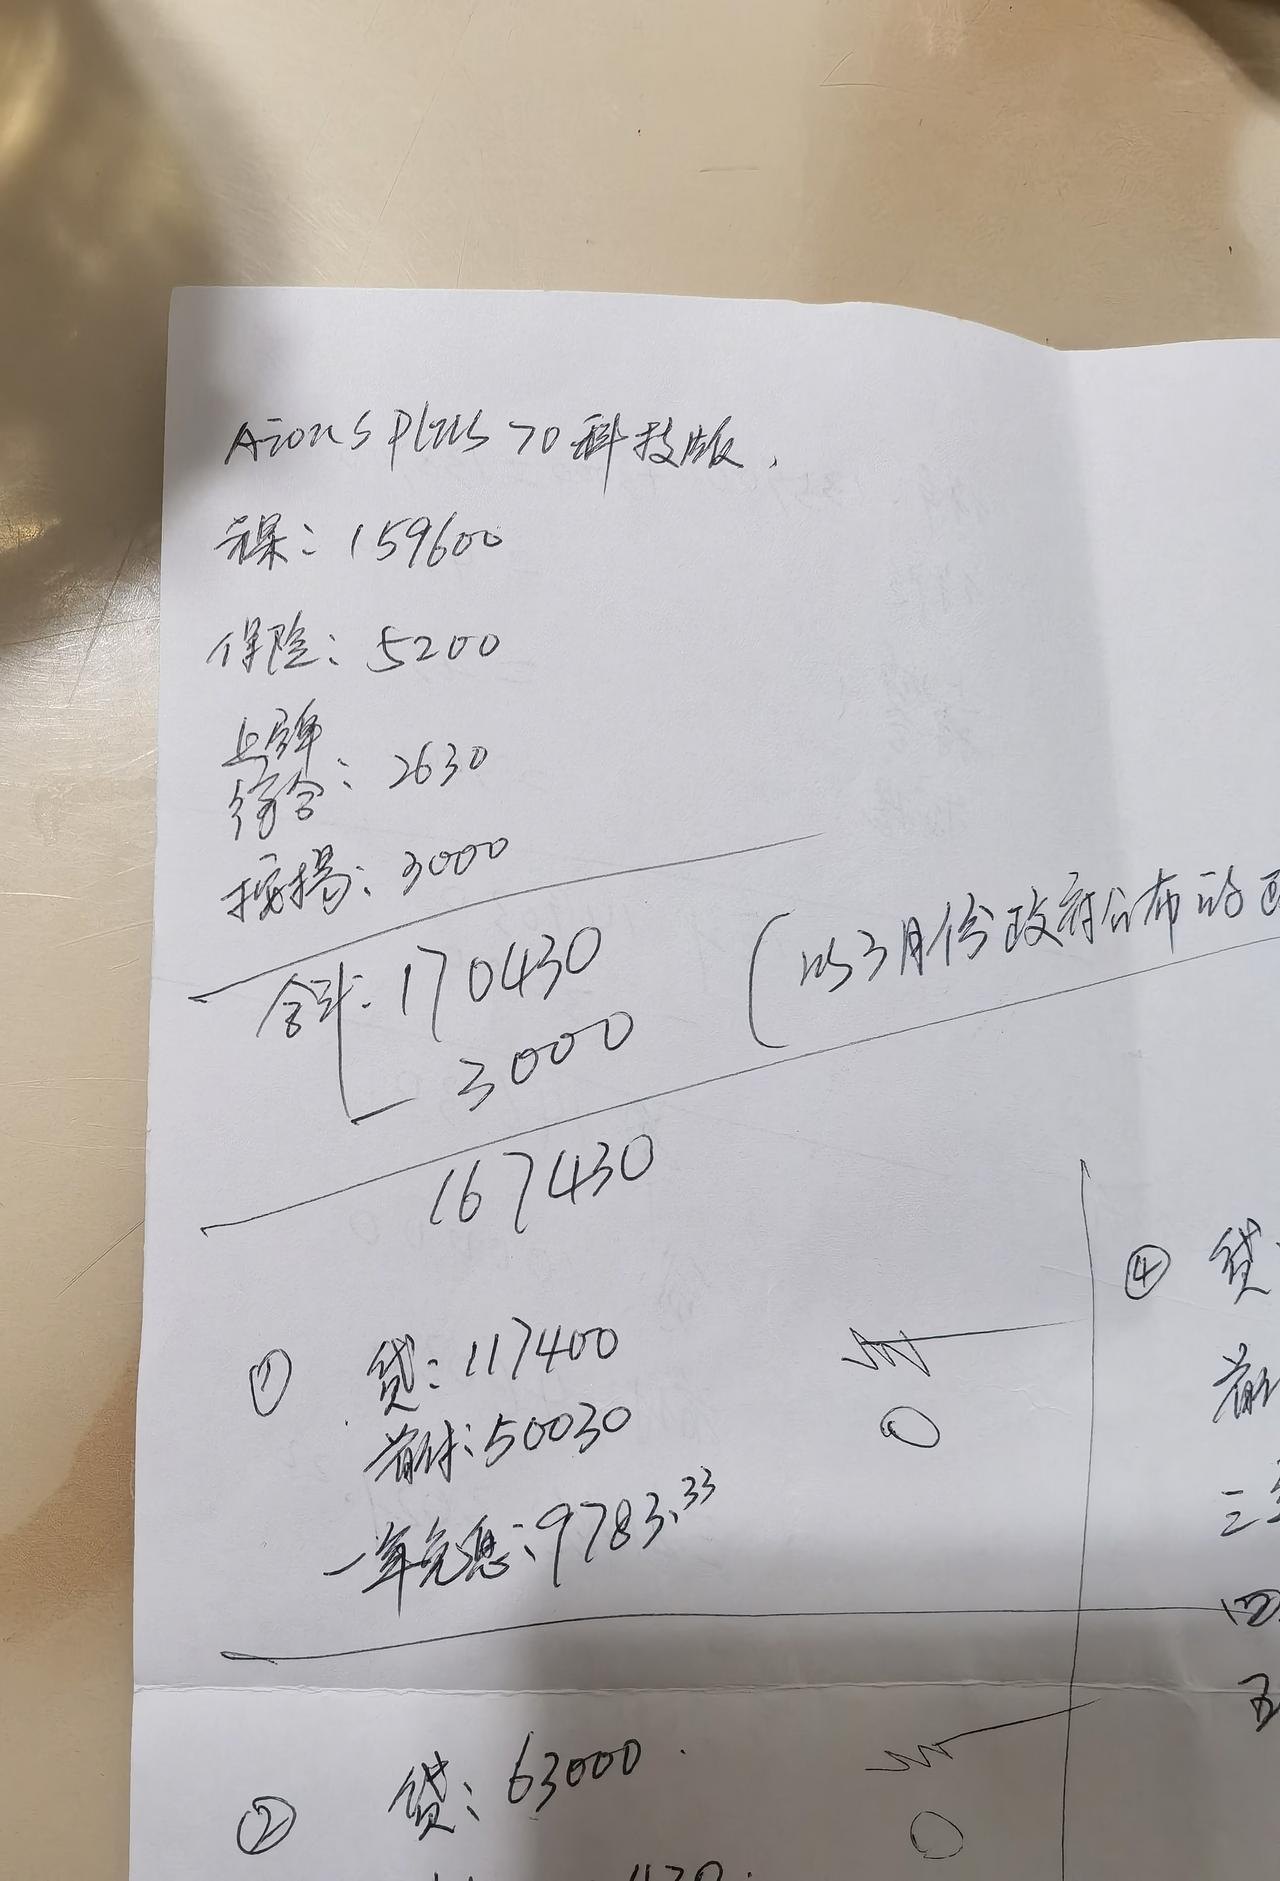 Aion S Plus 70 科技版
裸: 159600
保险: 5200
上牌
综合: 2630
按揭: 3000
合计: 170430
3000
(以3月份政府公布的
167430
① 贷: 117400
首付: 50030
一年免息: 9783.33
② 贷: 63000
④ 贷:
首
三
五